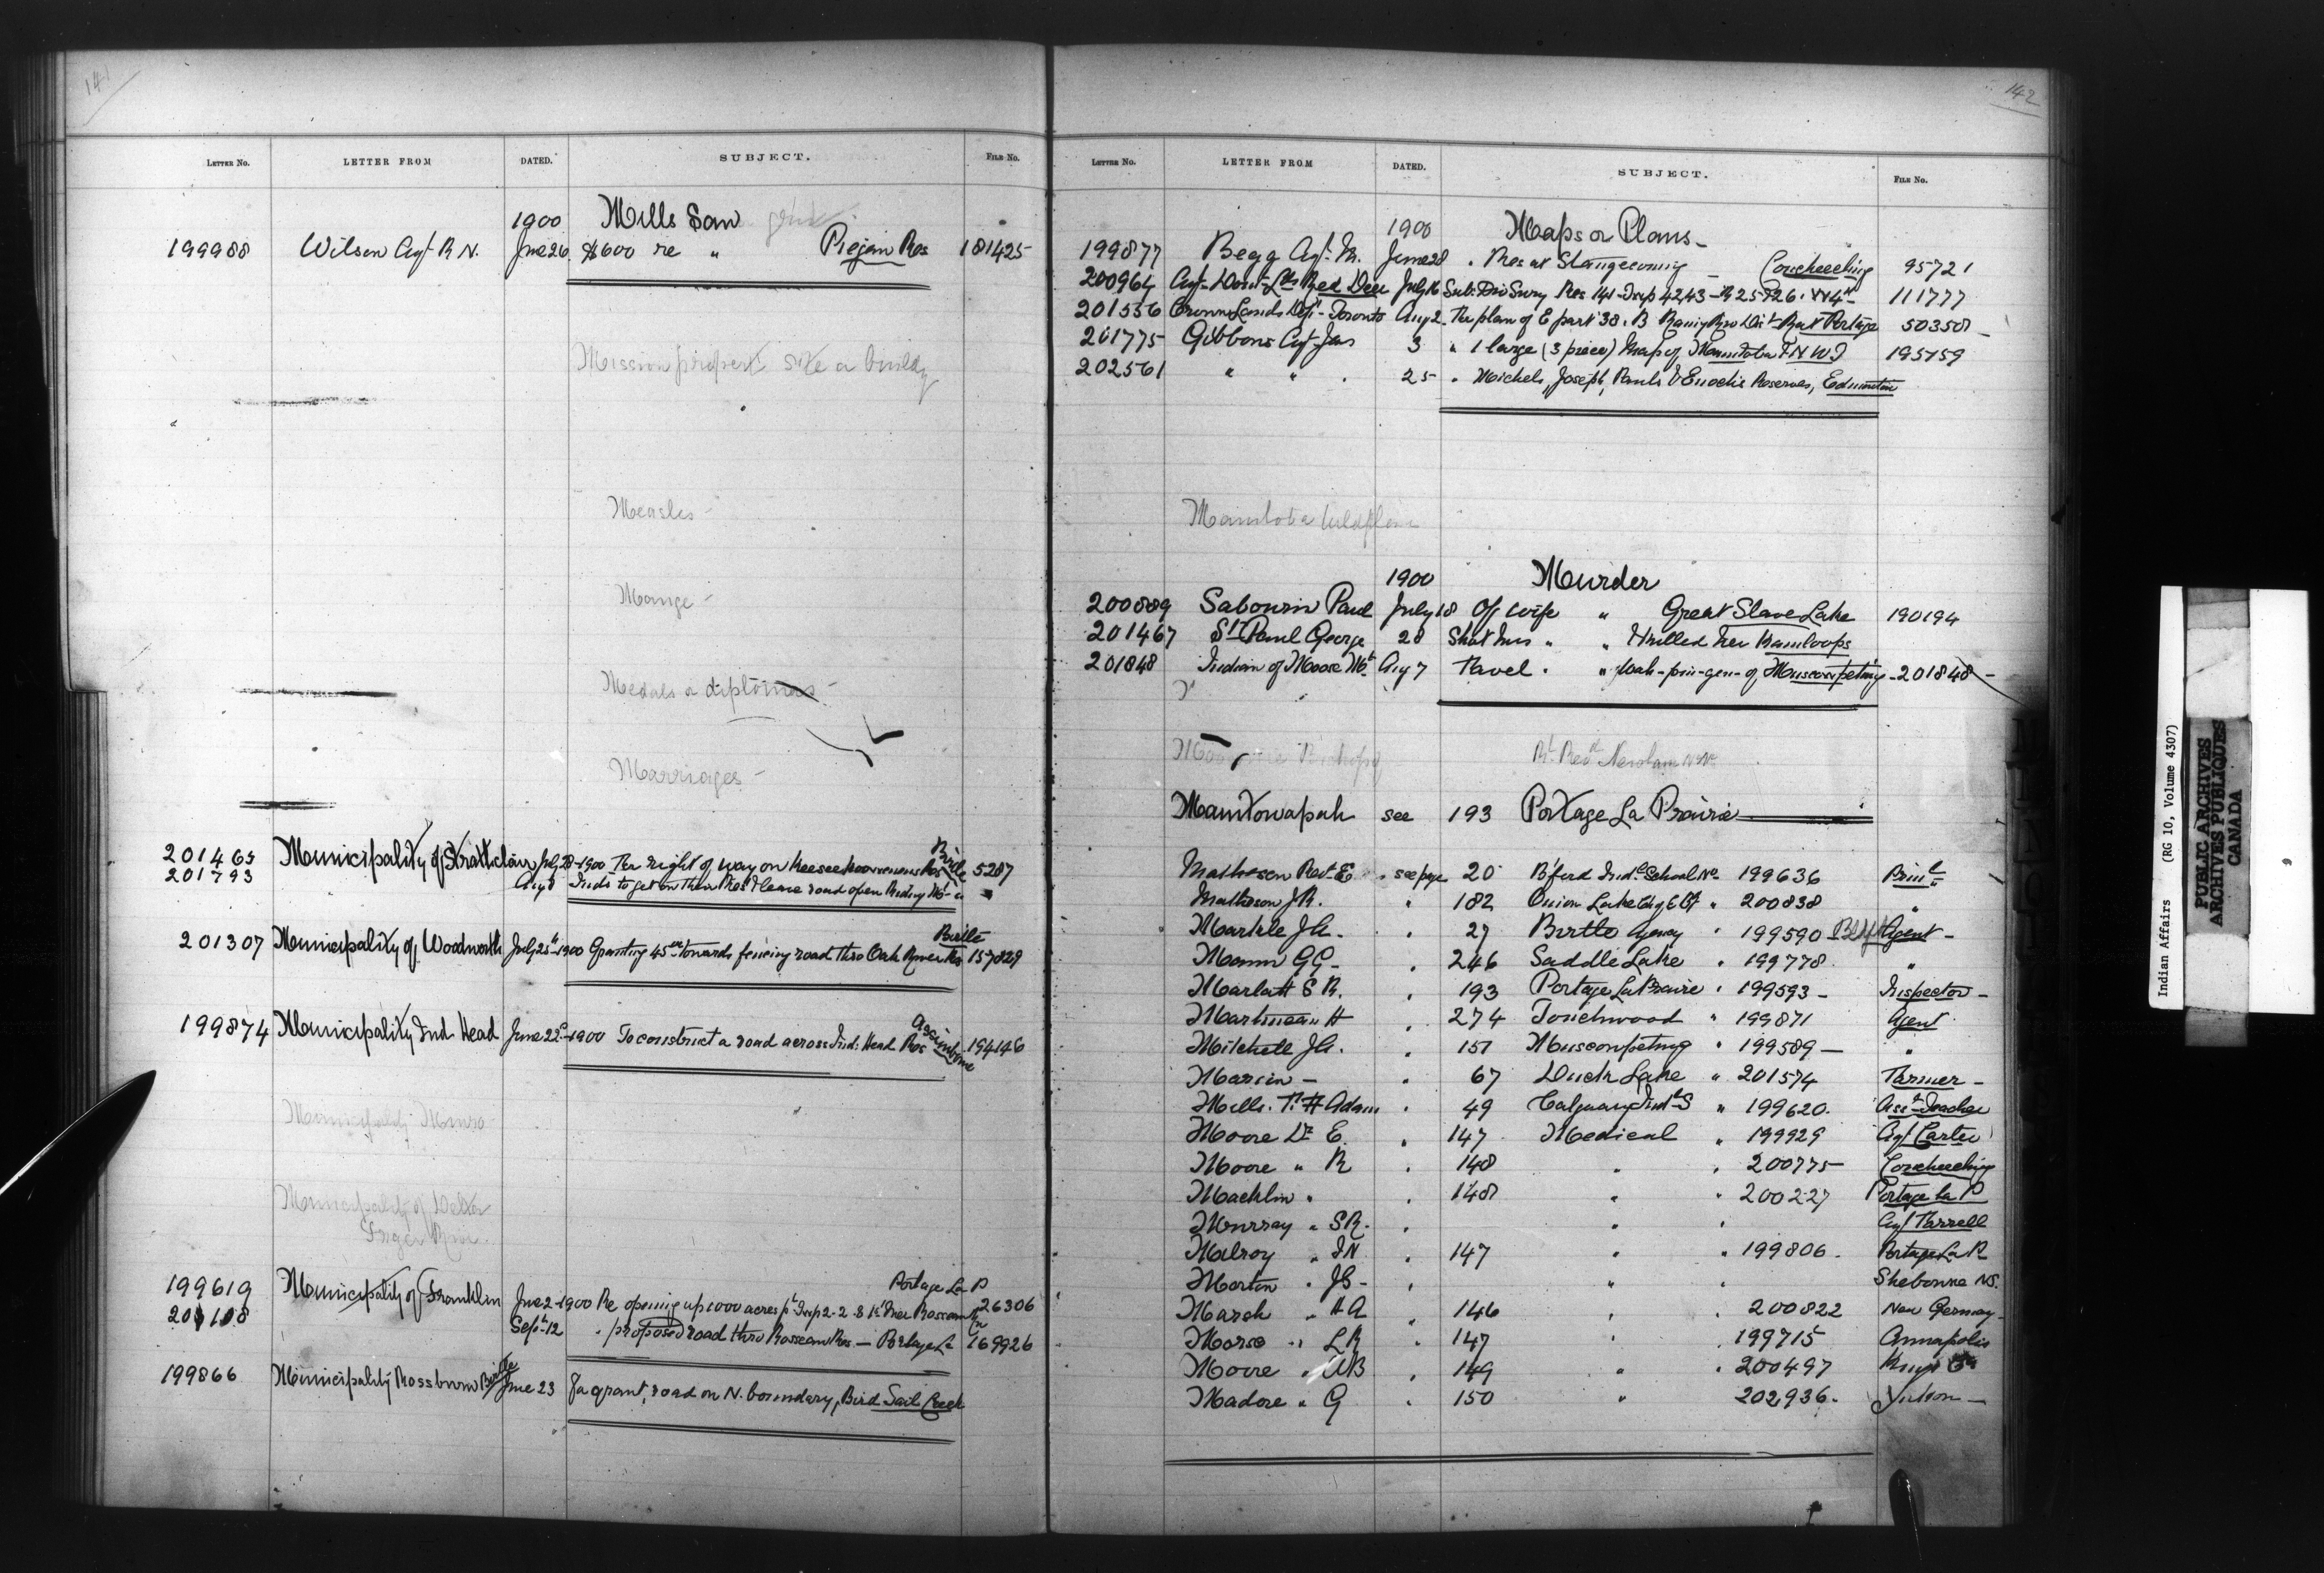 141
LETTER No. LETTER FROM DATED. SUBJECT. FILE No.
1900 Mills Saw
199988 Wilson Agt R N. June 26 $600 re " Piegan Res 181425
Mission property site or buildg
Measles -
Mange -
Medals or diplomas -
Marriages -
Birtle
201465 Municipality of Strathclair July 28-1900 The right of way on Keeseekoowenins Res 5287
201793 Aug 8 Inds to get on their Res & leave road open Riding Mt
Birtle
201307 Municipality of Woodworth July 25th-1900 Granting 45 towards fencing road thro Oak River Res 157829
Assiniboine
199874 Municipality Ind. Head June 22-1900 To construct a road across Ind: Head Res 194146
Municipality Munro
Municipality of
Portage La P
199619 Municipality of Franklin June 2-1900 Re opening up 1000 acres pt Twp 2-2-8 1st Mer Roseau 26306
201108 Sept 12 " proposed road thro Roseau Res. - Portage La 169926
199866 Municipality Rossburn Birtle June 23 Fa grant, road on N. boundary, Bird Tail Creek
142
LETTER No. LETTER FROM DATED. SUBJECT. FILE No.
1900 Maps or Plans -
199877 Begg Agt. M. June 28 " Res at Stangecoming - Coucheeching 95721
200964 Agt Domn Lds Red Deer July 16 Sub: Div Survy Res 141 - Twp 42 43 - R 25 & 26 . W 4th 111777
201556 Crown Lands Dept - Toronto Aug 2 The plan of E part 38. B Rainy River Dist - Rat Portage 50350
201775 Gibbons Agt Jas 3 " 1 large (3 piece) Map of Manitoba & N W T 195759
202561 " " " 25 " Michels, Joseph, Pauls & Enochs Reserves, Edmonton
Manitoba
1900 Murder
200889 Sabourin Paul July 18 Of wife " Great Slave Lake 190194
201467 St Paul George 28 Shot his " " & killed her Kamloops
201848 Indian of Moose Mt Aug 7 " of Muscowpetung - 201848 -
Rt Revd Newnham
Manitowapah see 193 Portage La Prairie
Matheson Rev. E. . see page 20 B'ford Indl School No 199636 Prinl
Matheson J R. " 182 Onion Lake " 200838 "
Markle J A. " 27 Birtle Agency " 199590 Agent -
Mann G G - " 246 Saddle Lake " 199778 "
Marlatt S R. " 193 Portage La Prairie " 199593 - Inspector -
Martineau H " 274 Touchwood " 199871 Agent
Mitchell J A. " 151 Muscowpetung " 199589 - "
Marion - " 67 Duck Lake " 201574 Farmer -
Mills. T. H Adam " 49 Calgary Indl S " 199620. Asst Teacher
Moore Dr E. " 147 Medical " 199929 Agt Carter
Moore " R " 148 " " 200775 - Coucheeching
Macklin " " 148 " " 200227 Portage la P
Murray " S R. " " " Agt Farrell
Milroy " J N " 147 " " 199806. Portage La P
Morton " J S - " " " Shebonne N S.
March " H A " 146 " " 200822 New Germany
Morse " L R " 147 " " 199715 Annapolis
Moore " W B " 149 " " 200497 Kings Co
Madore " G " 150 " 202936. Yukon -
Indian Affairs (RG 10, Volume 4307)
PUBLIC ARCHIVES
ARCHIVES PUBLIQUES
CANADA